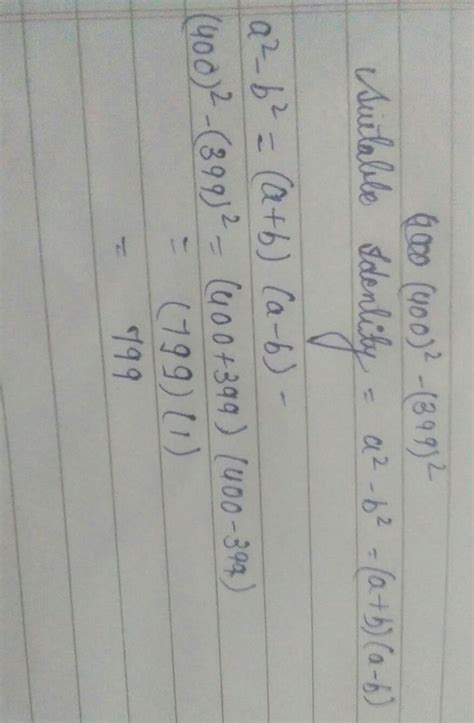 (400)² - (399)²
Suitable Identity = a² - b² = (a+b) (a-b)
a² - b² = (a+b) (a-b) -
(400)² - (399)² = (400+399) (400-399)
= (799) (1)
= 799